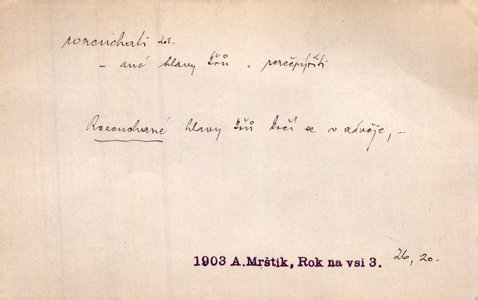 rozcuchati dok.
– ané hlavy keřů = rozčepýřiti
Rozcuchané hlavy keřů krčí se v závěje, –
1903 A. Mrštík, Rok na vsi 3. 26, 20.